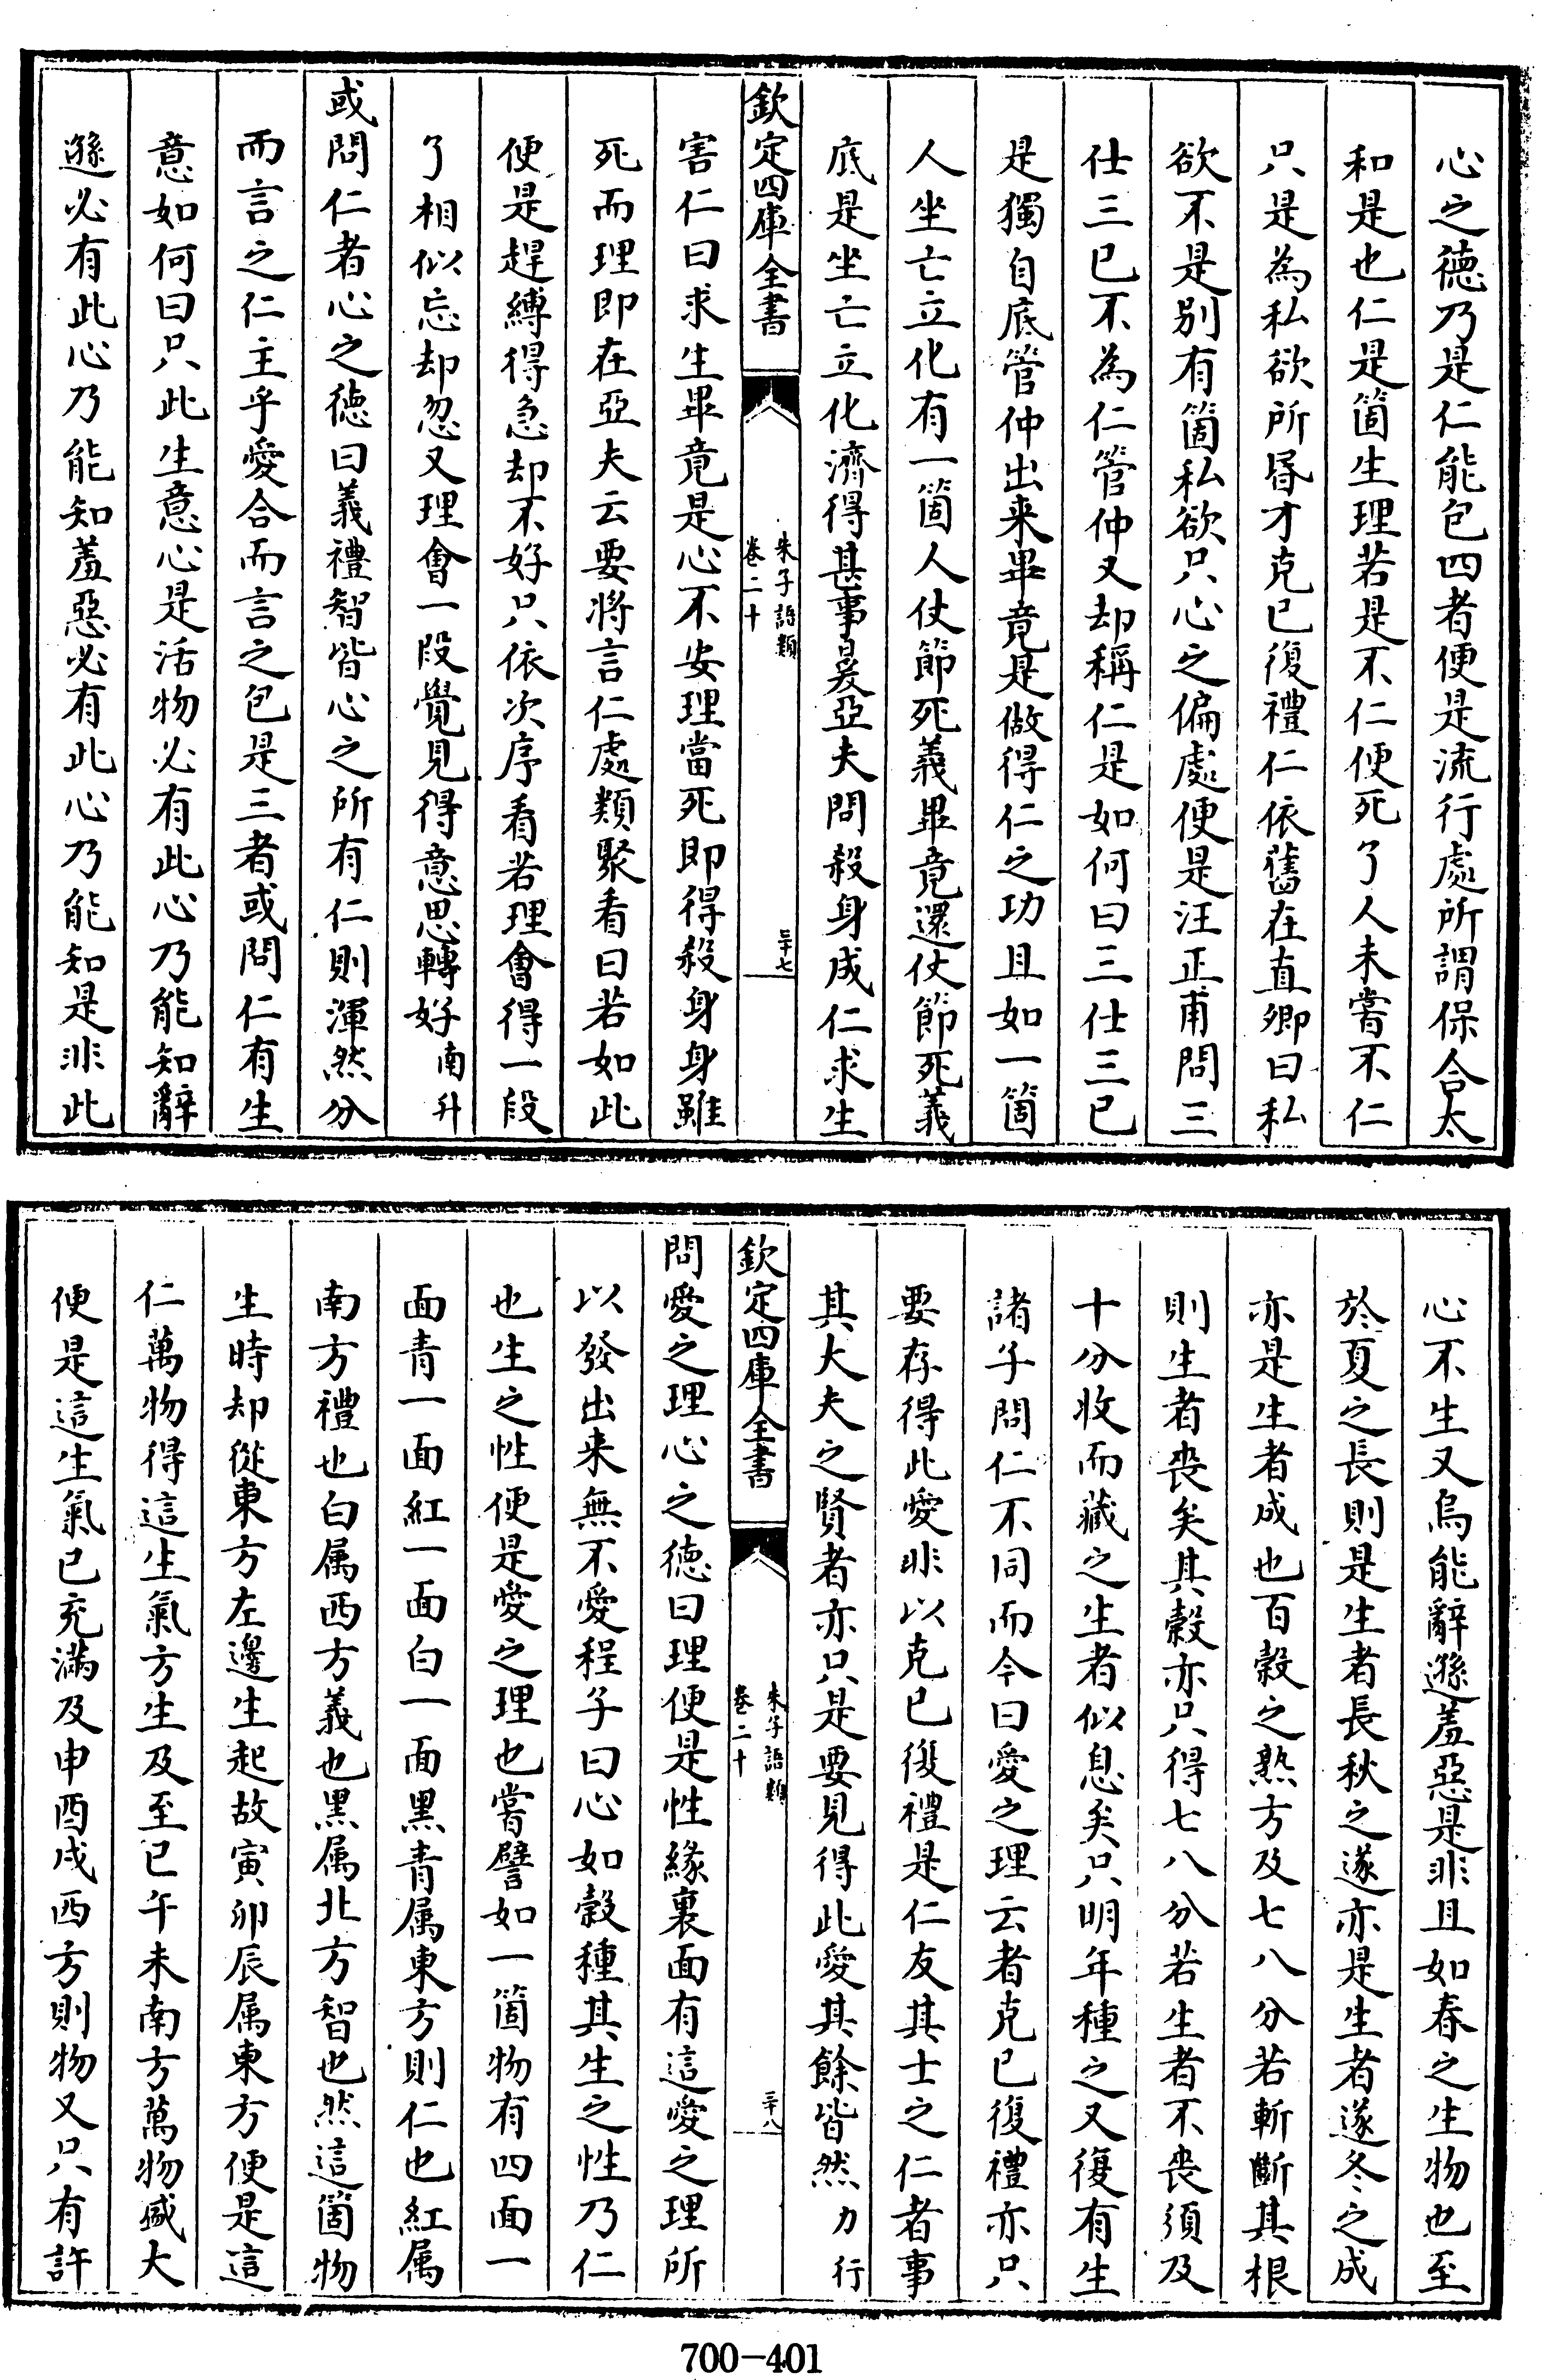 心之德乃是仁能包四者便是流行處所謂保合太
和是也仁是箇生理若是不仁便死了人未嘗不仁
只是為私欲所昏才克已復禮仁依舊在直卿曰私
欲不是别有箇私欲只心之偏處便是汪正甫問三
仕三已不為仁管仲又却稱仁是如何曰三仕三已
是獨自底管仲出来畢竟是做得仁之功且如一箇
人坐亡立化有一箇人仗節死義畢竟還仗節死義
底是坐亡立化濟得甚事晏亞夫問殺身成仁求生
欽定四庫全書
朱子語類
卷二十
三十七
害仁曰求生畢竟是心不安理當死即得殺身身雖
死而理即在亞夫云要將言仁處類聚看曰若如此
便是趕縛得急却不好只依次序看若理會得一段
了相似忘却忽又理會一段覺見得意思轉好南升
或問仁者心之德曰義禮智皆心之所有仁則渾然分
而言之仁主乎愛合而言之包是三者或問仁有生
意如何曰只此生意心是活物必有此心乃能知辭
遜必有此心乃能知羞惡必有此心乃能知是非此
心不生又烏能辭遜羞惡是非且如春之生物也至
於夏之長則是生者長秋之遂亦是生者遂冬之成
亦是生者成也百穀之熟方及七八分若斬斷其根
則生者喪矣其穀亦只得七八分若生者不喪須及
十分收而藏之生者似息矣只明年種之又復有生
諸子問仁不同而今曰愛之理云者克已復禮亦只
要存得此愛非以克已復禮是仁友其士之仁者事
其大夫之賢者亦只是要見得此愛其餘皆然力行
欽定四庫全書
朱子語類
卷二十
三十八
問愛之理心之德曰理便是性緣裏面有這愛之理所
以發出来無不愛程子曰心如穀種其生之性乃仁
也生之性便是愛之理也嘗譬如一箇物有四面一
面青一面紅一面白一面黑青属東方則仁也紅属
南方禮也白属西方義也黑属北方智也然這箇物
生時却從東方左邊生起故寅卯辰属東方便是這
仁萬物得這生氣方生及至巳午未南方萬物盛大
便是這生氣已充滿及申酉戌西方則物又只有許
700-401